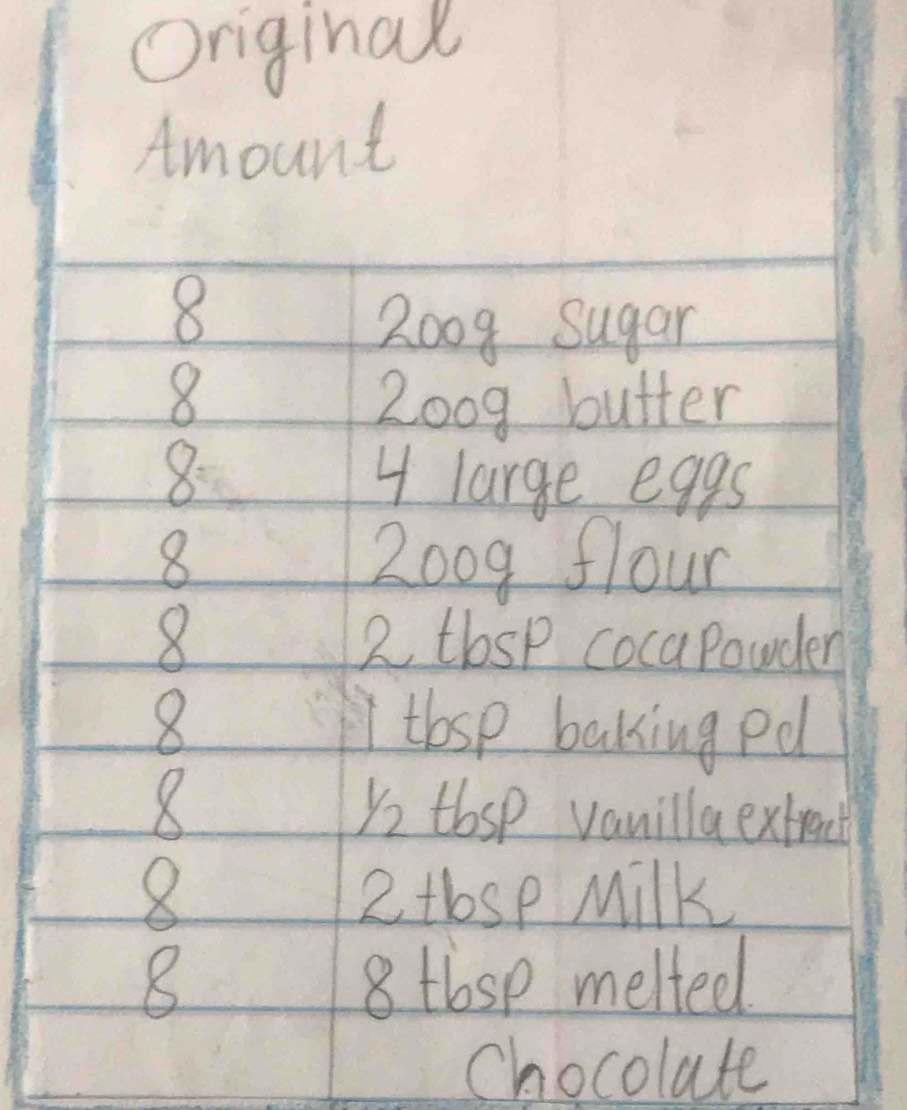 Original
Amount
8 200g sugar
8 200g butter
8 4 large eggs
8 200g flour
8 2 tbsp coca Powder
8 1 tbsp baking Pd
8 1/2 tbsp vanilla extract
8 2 tbsp Milk
8 8 tbsp melted
Chocolate